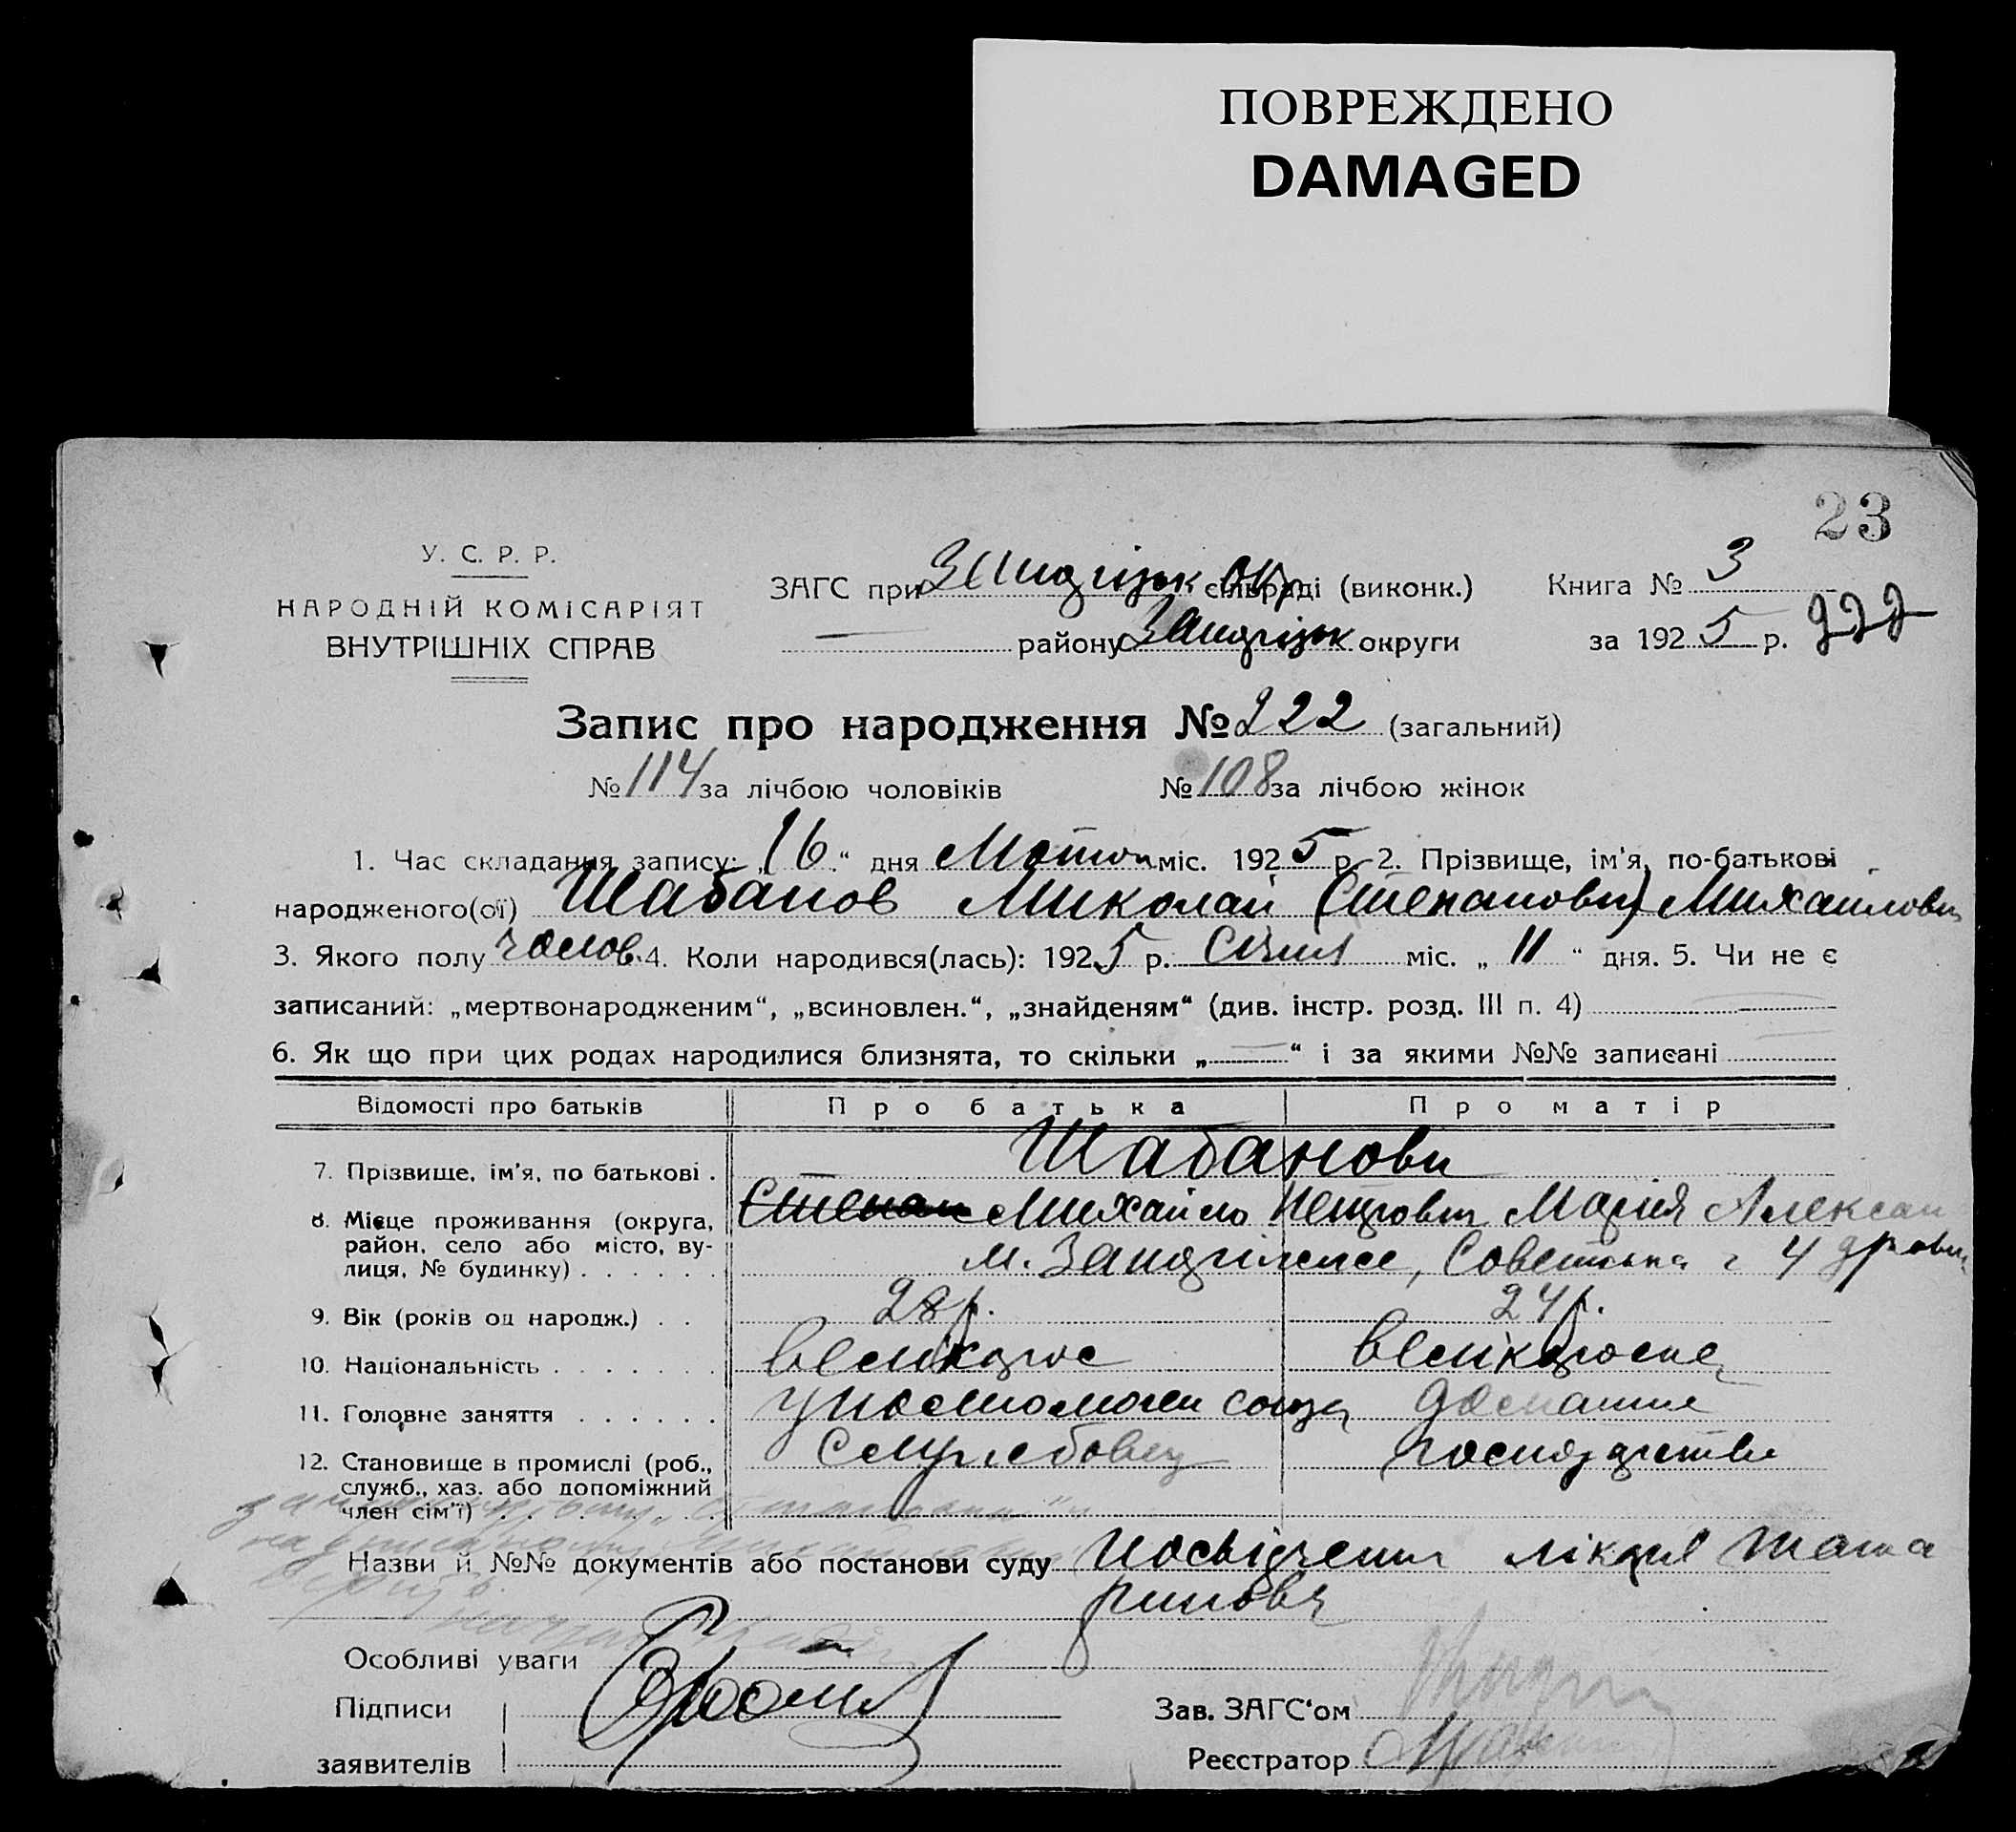 ПОВРЕЖДЕНО
DAMAGED
23
У. С. Р. Р.
НАРОДНІЙ КОМІСАРІЯТ
ВНУТРІШНІХ СПРАВ
ЗАГС при Запорізьк окр сільраді (виконк.)
району Запорізьк округи
Книга № 3
за 1925 р. 222
Запис про народження № 222 (загальний)
№ 114 за лічбою чоловіків № 108 за лічбою жінок
1. Час складання запису: „16“ дня Лютого міс. 1925 р. 2. Прізвище, ім'я, по-батькові
народженого(ої) Шабанов Миколай (Степанович) Михайлович
3. Якого полу чолов. 4. Коли народився(лась): 1925 р. Січня міс. „11“ дня. 5. Чи не є
записаний: „мертвонародженим“, „всиновлен.“, „знайденям“ (див. інстр. розд. III п. 4)
6. Як що при цих родах народилися близнята, то скільки „—“ і за якими №№ записані
Відомості про батьків Про батька Про матір
7. Прізвище, ім'я, по батькові . Шабанови
8. Місце проживання (округа, район, село або місто, вулиця, № будинку) . . . . . . Степан Михайло Петрович Марія Александровна
м. Запоріжже, Советська 4
9. Вік (років од народж.) . . 28 р. 24 р.
10. Національність . . . . . . . велікорос велікороска
11. Головне заняття . . . . . . уповномочен союза домашне
12. Становище в промислі (роб., служб., хаз. або допоміжний член сім'ї) . . службовец господарство
Назви й №№ документів або постанови суду посвідчення лікаря Тата
ринова
Особливі уваги
Підписи
заявителів
Зав. ЗАГС'ом
Реєстратор